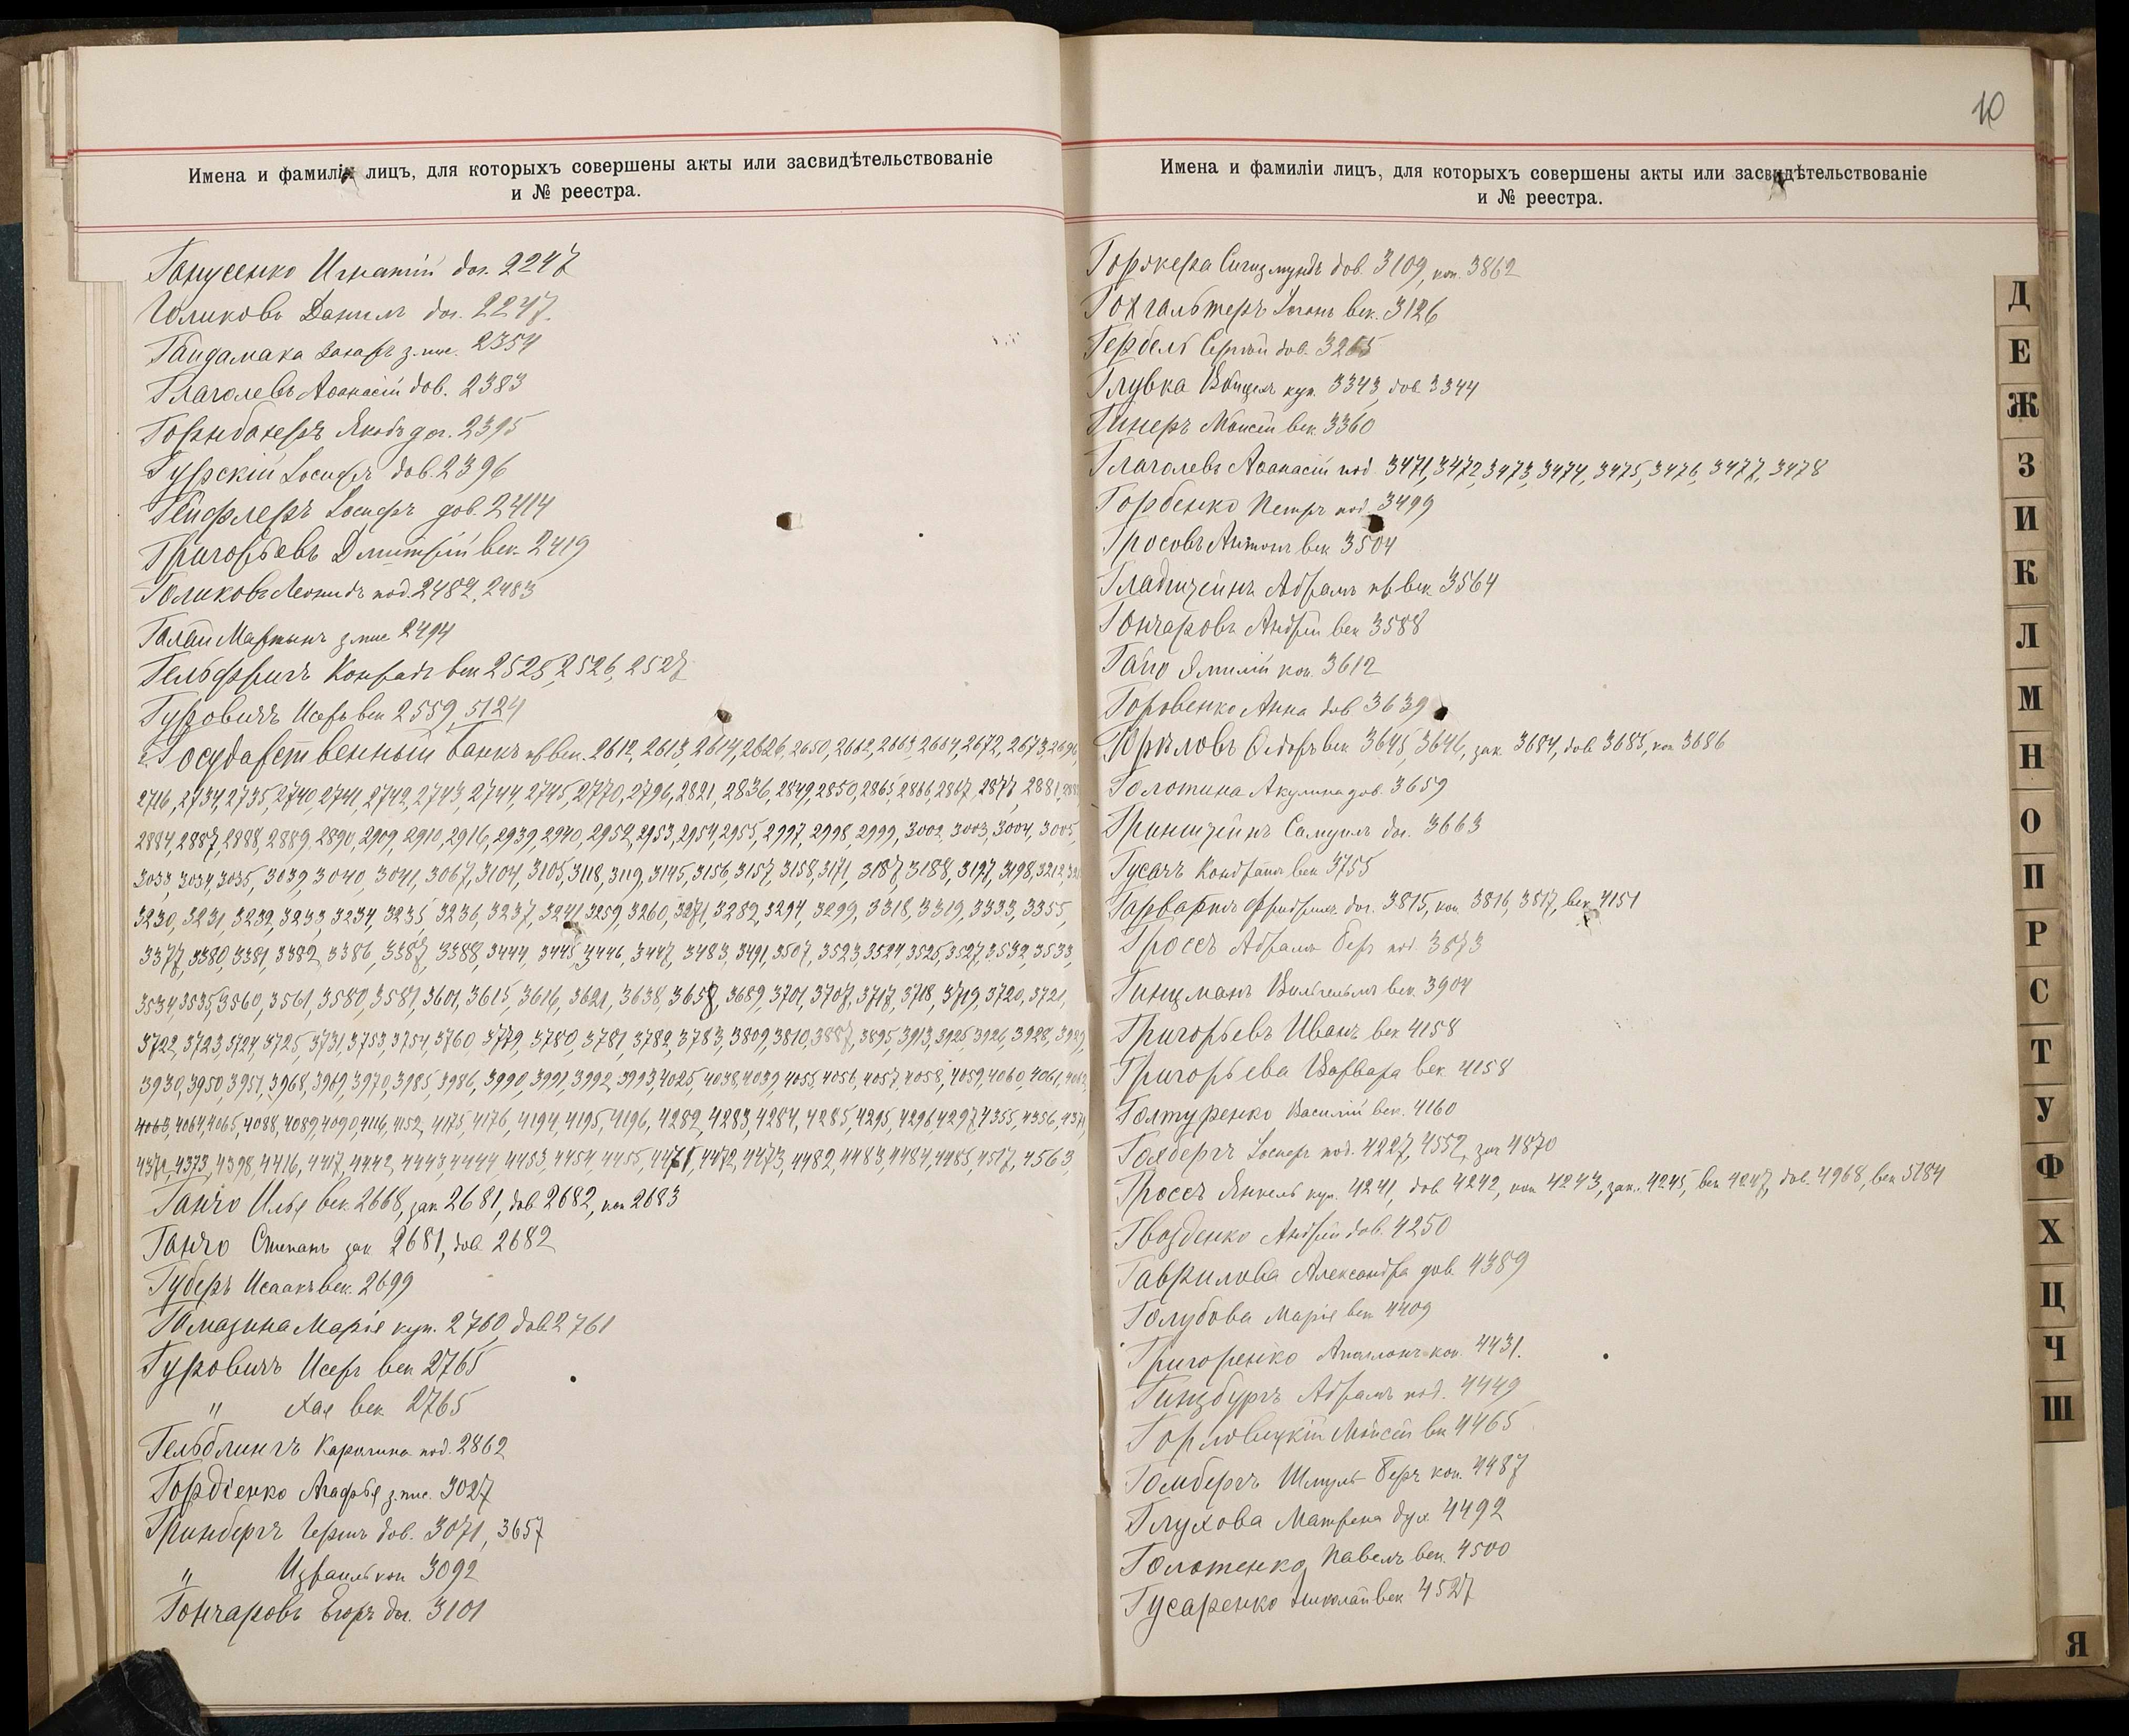 Имена и фамиліи лицъ, для которыхъ совершены акты или засвидѣтельствованіе
и № реестра.
Ганусенко Игнатій дог. 2247
Голиковъ Данилъ дог. 2247.
Гайдамака Захаръ з. пис. 2354
Глаголевъ Аѳанасій дов. 2383
Яковъ дог. 2395
Гурскій Іосифъ дов. 2396
Гейфлеръ Іосифъ дов. 2414
Григорьевъ Дмитрій век 2419
Голиковъ Леонидъ под. 2482, 2483
Галай Мартынъ з. пис 2494
Гельфрихъ Конрадъ век 2525, 2526, 2527
Гуровичъ Исеръ век 2559, 5124
Государственный банкъ пр. век. 2612, 2613, 2614, 2626, 2650, 2662, 2663, 2664, 2672, 2673, 2696,
2716, 2734, 2735, 2740, 2741, 2742, 2743, 2744, 2745, 2770, 2796, 2821, 2836, 2849, 2850, 2865, 2866, 2867, 2877, 2881,
2884, 2887, 2888, 2889, 2890, 2909, 2910, 2916, 2939, 2940, 2952, 2953, 2954, 2955, 2997, 2998, 2999, 3002, 3003, 3004, 3005,
3033, 3034, 3035, 3039, 3040, 3041, 3067, 3104, 3105, 3118, 3119, 3145, 3156, 3157, 3158, 3171, 3187, 3188, 3197, 3198, 3212,
3230, 3231, 3232, 3233, 3234, 3235, 3236, 3237, 3241, 3259, 3260, 3271, 3282, 3294, 3299, 3318, 3319, 3333, 3355,
3377, 3380, 3381, 3382, 3386, 3387, 3388, 3444, 3445, 3446, 3447, 3483, 3491, 3507, 3523, 3524, 3525, 3527, 3532, 3533,
3534, 3535, 3560, 3561, 3580, 3581, 3601, 3615, 3616, 3621, 3638, 3658, 3689, 3701, 3707, 3717, 3718, 3719, 3720, 3721,
3722, 3723, 3724, 3725, 3731, 3753, 3754, 3760, 3779, 3780, 3781, 3782, 3783, 3809, 3810, 3887, 3895, 3913, 3925, 3926, 3928, 3929,
3930, 3950, 3951, 3968, 3969, 3970, 3985, 3986, 3990, 3991, 3992, 3993, 4025, 4038, 4039, 4055, 4056, 4057, 4058, 4059, 4060, 4061,
4063, 4064, 4065, 4088, 4089, 4090, 4116, 4152, 4175, 4176, 4194, 4195, 4196, 4282, 4283, 4284, 4285, 4295, 4296, 4297, 4355, 4356,
4372, 4373, 4398, 4416, 4417, 4442, 4443, 4444, 4453, 4454, 4455, 4471, 4472, 4473, 4482, 4483, 4484, 4485, 4517, 4563,
Ганчо Илья век. 2668, зак 2681, дов 2682, коп 2683
Ганчо Степанъ зак 2681, дов 2682
Губеръ Исаакъ век. 2699
Гомазина Марія куп. 2760, дов. 2761
Гуровичъ Исеръ век 2765
" Хая век 2765
Гельблингъ Каролина под. 2862
Гордіенко Агафья з. пис. 3027
Гринбергъ Гершъ дов. 3071, 3657
" Израиль коп 3092
Гончаровъ Егоръ дог. 3101
10
Имена и фамиліи лицъ, для которыхъ совершены акты или засвидѣтельствованіе
и № реестра.
Сигизмундъ дов. 3109, коп. 3862
Гохгальтеръ Іоганъ век. 3126
Гербель Сергѣй дов. 3265
Глувка куп. 3343, дов. 3344
Гинеръ Моисей век. 3360
Глаголевъ Аѳанасій под. 3471, 3472, 3473, 3474, 3475, 3476, 3477, 3478
Горбенко Петръ под. 3499
Гросовъ Антонъ век 3504
Гладштейнъ Абрамъ пр. век 3564
Гончаровъ Андрей век 3588
коп. 3612
Горовенко Анна дов 3639
Ѳедоръ век 3645, 3646, зак 3684, дов 3685, коп 3686
Голотина Акулина дов. 3659
Гринштейнъ Самуилъ дог. 3663
Гусачъ Кондратъ век 3755
Фридрихъ дог. 3815, коп 3816, 3817, век 4151
Гроссъ Абрамъ Беръ под. 3873
Гинцманъ Вильгельмъ век. 3904
Григорьевъ Иванъ век 4158
Григорьева Варвара век 4158
Голтуренко Василій век. 4160
Голдбергъ Іосифъ под. 4227, 4552, зак 4870
Гроссъ Янкель куп. 4241, дов 4242, коп 4243, зак. 4245, век 4247, дов. 4968, век 5184
Гвозденко Андрей дов. 4250
Гаврилова Александра дов. 4389
Голубова Марія век 4409
Григоренко Аполлонъ коп. 4431.
Гинзбургъ Абрамъ под. 4449
Горловицкій Моисей век 4465
Гомбергъ Шмуль-Беръ коп. 4487
Глухова Матрена дух 4492
Голотенко Павелъ век. 4500
Гусаренко Николай век 4527
Д
Е
Ж
З
И
К
Л
М
Н
О
П
Р
С
Т
У
Ф
Х
Ц
Ч
Ш
Я